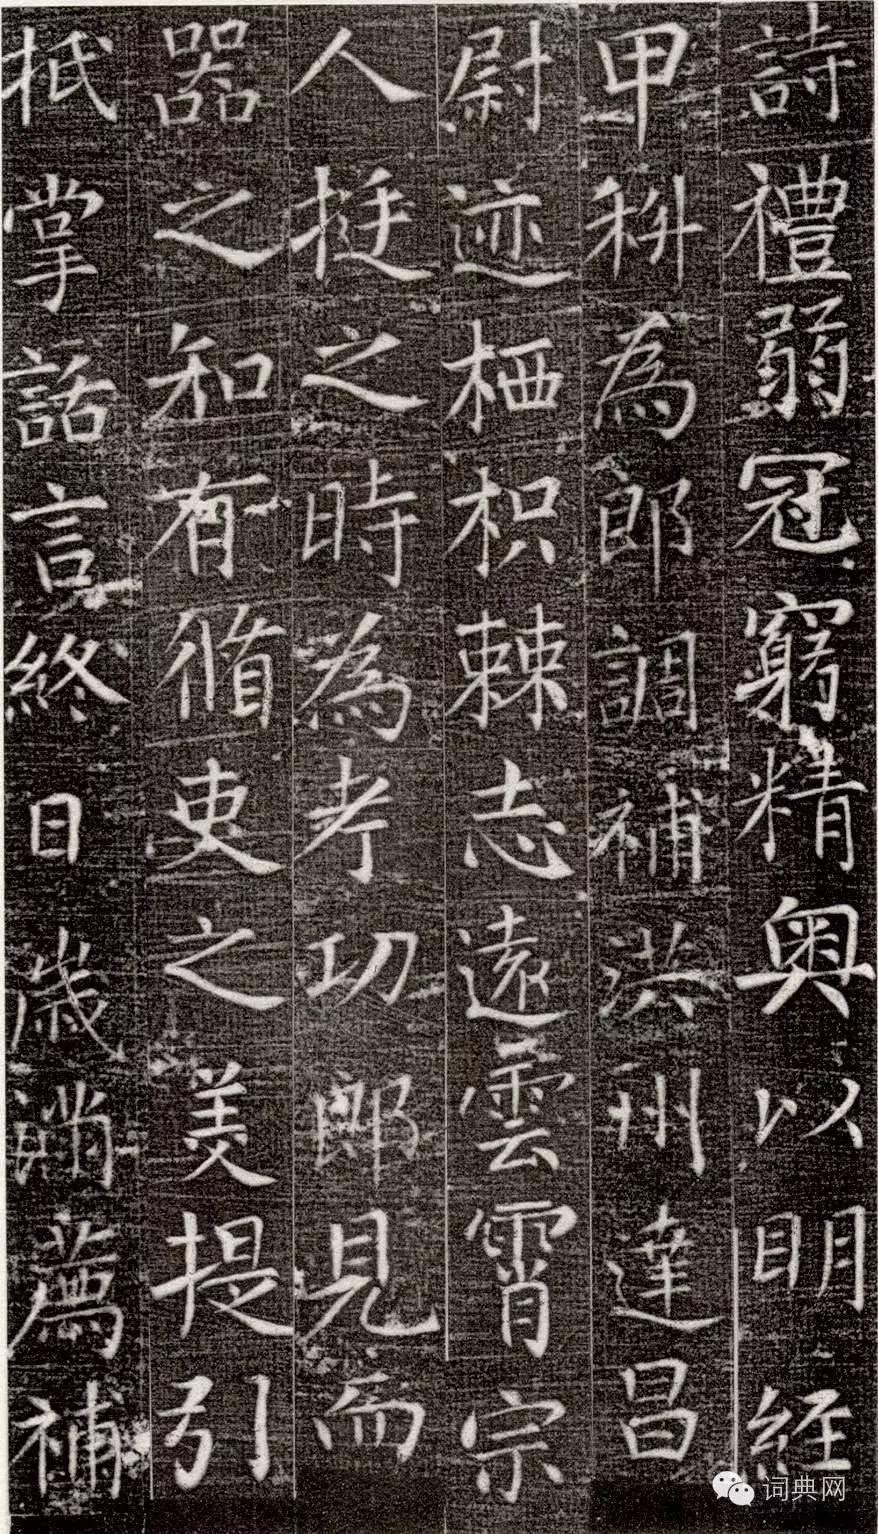 詩禮弱冠窮精奥以明經
甲科為郎調補洪州達昌
尉迹栖枳棘志遠雲霄宗
人挺之時為考功郎見而
器之和有脩吏之美提引
抵掌話言終日歳滿薦補
词典网